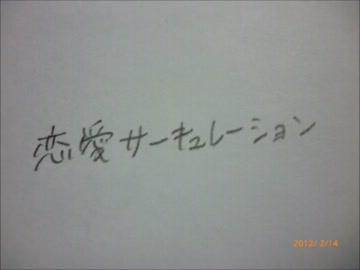 恋愛サーキュレーション
2012/ 2/14